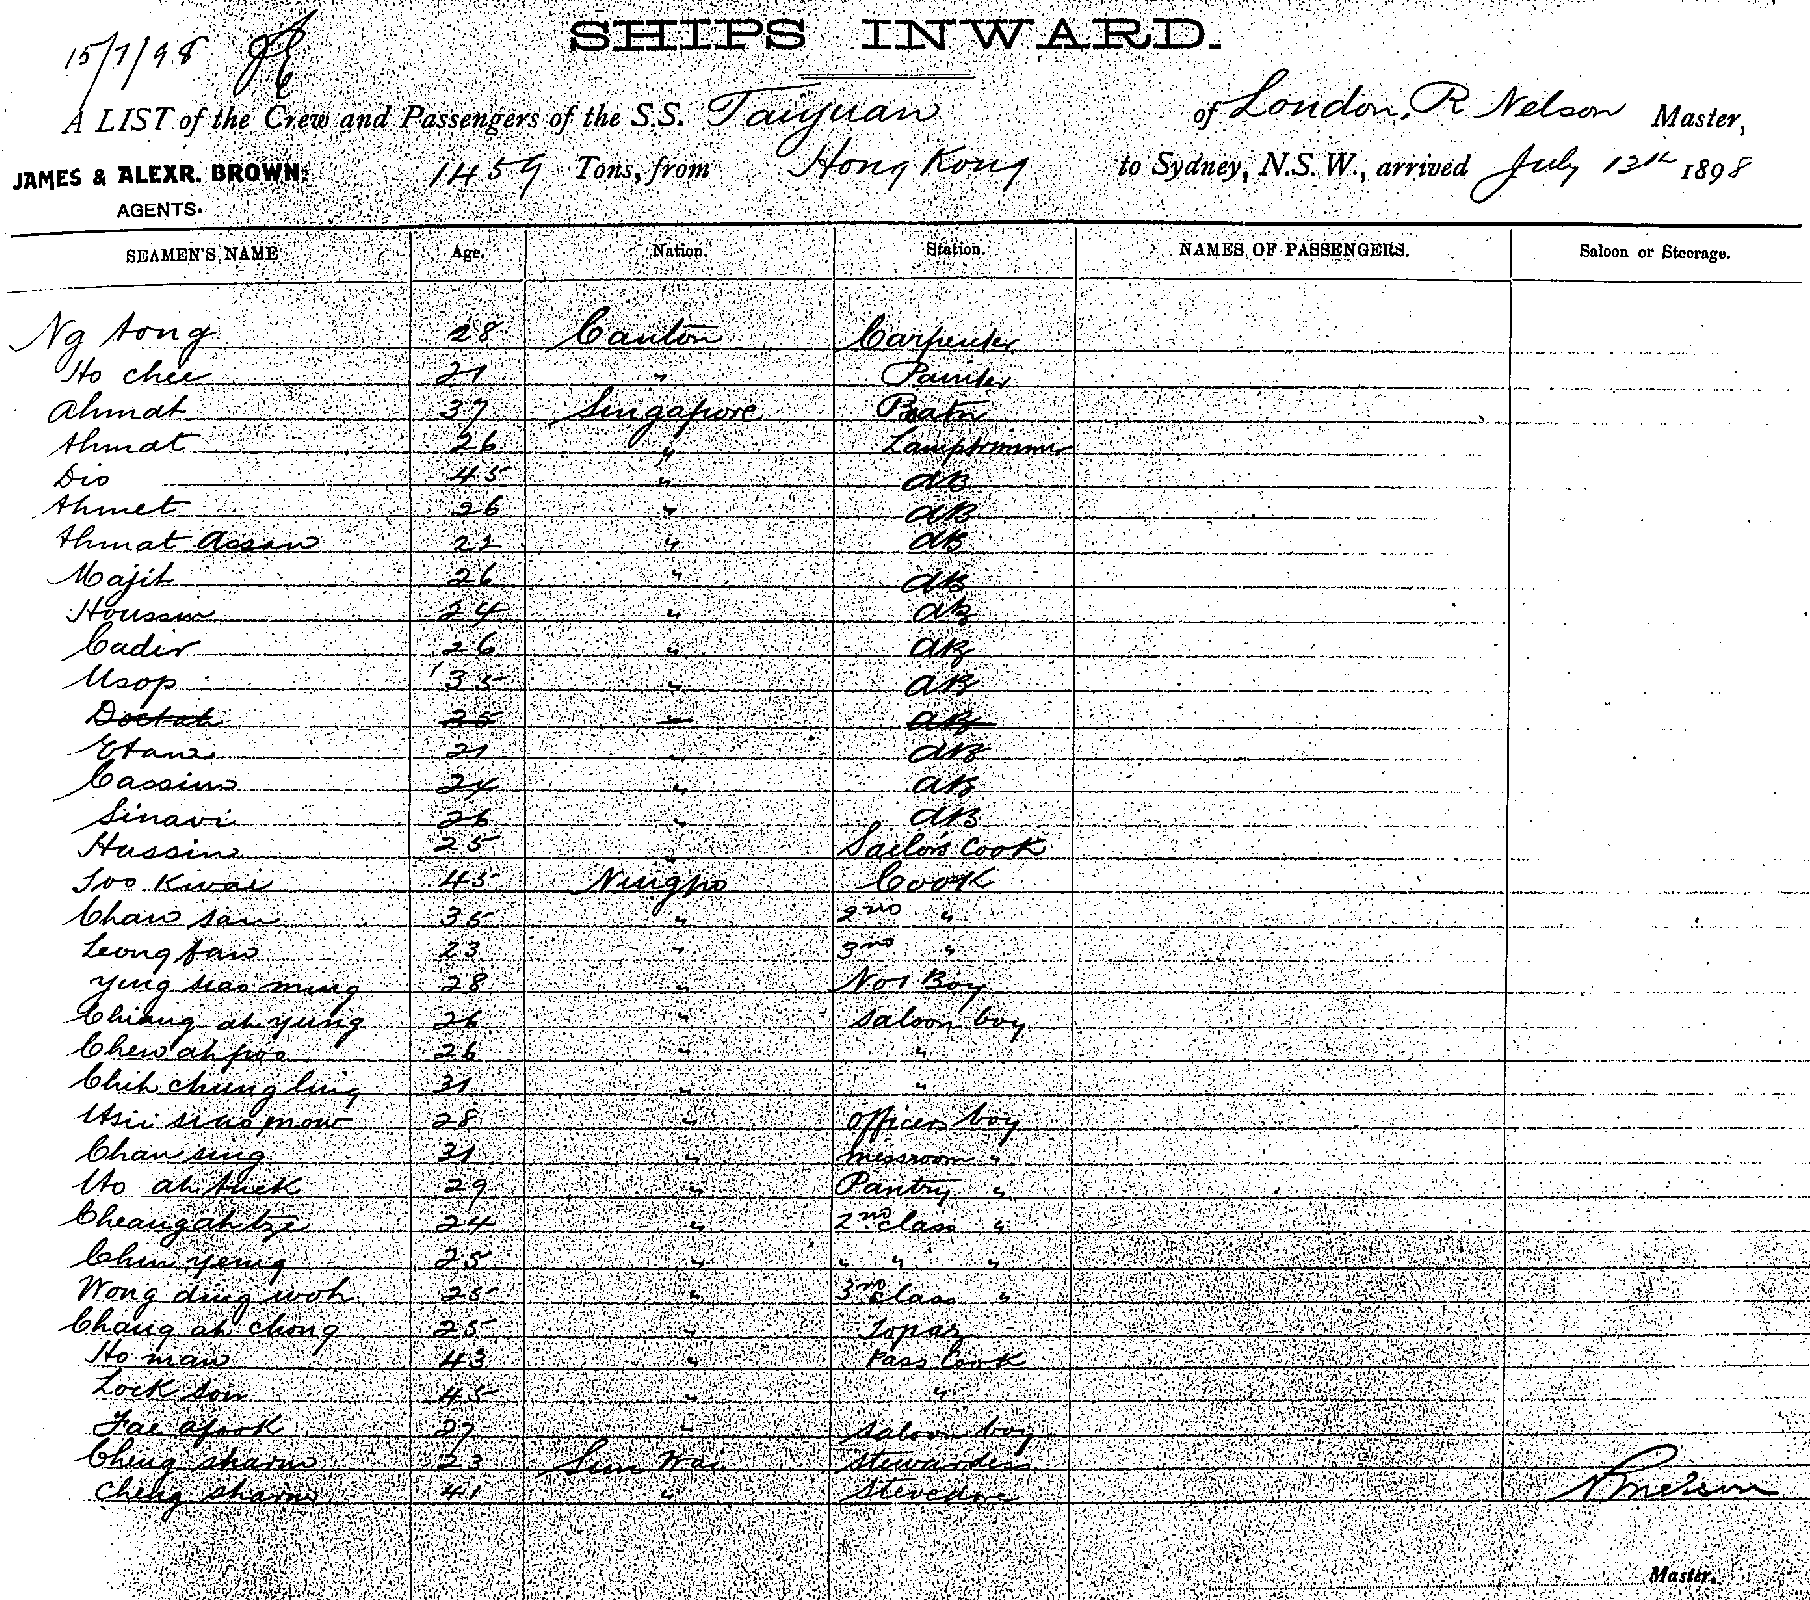 SHIPS INWARD.
15/7/98
A LIST of the Crew and Passengers of the S.S. Taiyuan of London, R Nelson Master,
JAMES & ALEXR. BROWN: 1459 Tons, from Hong Kong to Sydney, N.S.W., arrived July 13th 1898
AGENTS.
SEAMEN'S NAME Age. Nation. Station. NAMES OF PASSENGERS. Saloon or Steerage.
Ng tong 28 Canton Carpenter
Ho chee 21 " Painter
Ahmat 37 Singapore
Ahmat 26 " Lamptrimmer
Dio 45 " AB
Ahmet 26 " AB
Ahmat Assan 22 " AB
Majit 26 " AB
Houssin 24 " AB
Cadir 26 " AB
Usop 35 " AB
Doctah 25 " AB
21 " AB
Cassim 24 " AB
Sinavi 26 " AB
Hassim 25 " Sailors Cook
Soo Kwai 45 Ningpo Cook
Chan san 35 " 2nd "
Leong fan 23 " 3rd "
Ying siao ming 28 " No 1 Boy
Chiang ah yung 26 " Saloon boy
Chew ah poo 26 " "
Chih chung ling 31 " "
Hsii siao mow 28 " officers boy
Chan sing 31 " messroom "
Ho ah tuck 29 " Pantry "
Cheang ah tze 24 " 2nd class "
Chin yeng 25 " " " "
Wong ding woh 25 " 3rd class "
Chang ah chong 25 " Topaz
Ho man 43 " Pass Cook
Lock son 45 " "
Fae apook 27 " Saloon boy
Cheng sharm 23 Sun Wai Stewardess
Cheng sharm 41 " Stevedore
R Nelson
Master.